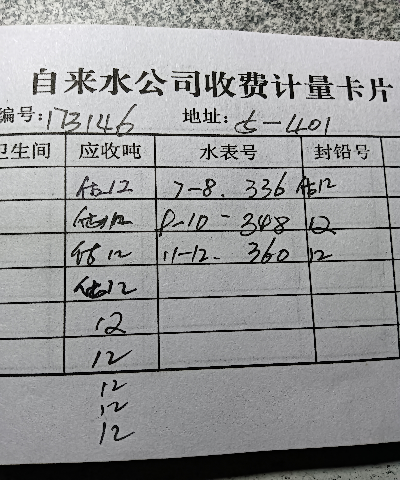 自来水公司收费计量卡片
编号:173146 地址: 5-401
卫生间 应收吨 水表号 封铅号
估12 7-8. 336 估12
估12 9-10- 348 12
估12 11-12- 360 12
估12
12
12
12
12
12